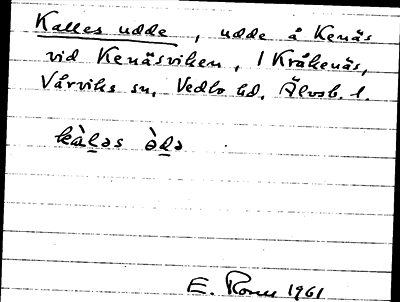 Kalles udde, udde å Kenäs
vid Kenäsviken, i Kråkenäs,
Vårviks sn, Vedbo hd, Älvsb. l.
kàl̲əs ò̀d̲ə
E. 1961